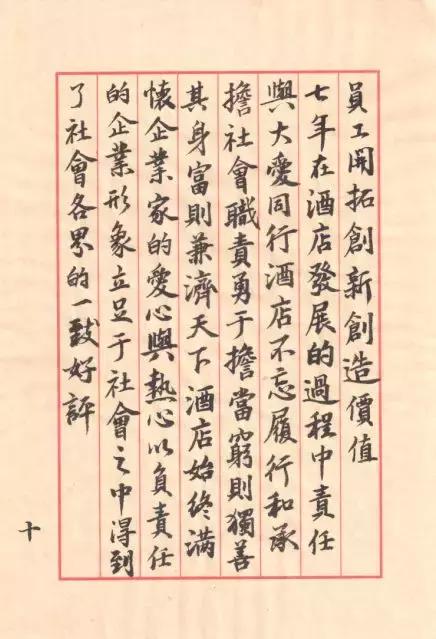 員工開拓創新創造價值
七年在酒店發展的過程中責任
與大愛同行酒店不忘履行和承
擔社會職責勇于擔當窮則獨善
其身富則兼濟天下酒店始终满
懷企業家的愛心與熱心以负責任
的企業形象立足于社會之中得到
了社會各界的一致好評
十